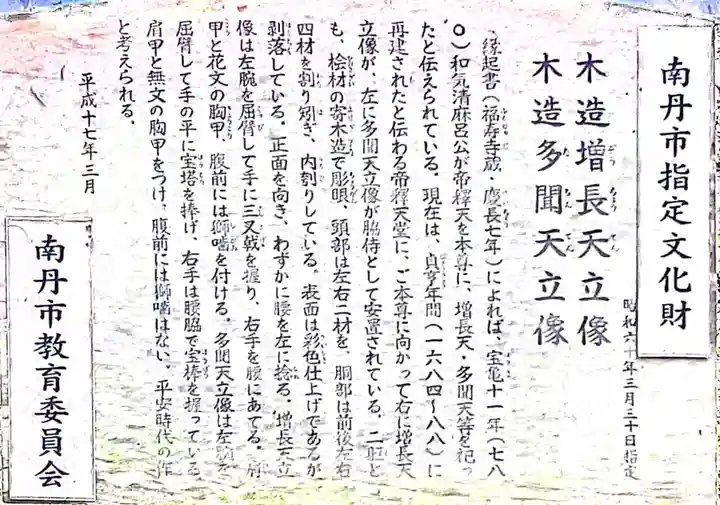 南丹市指定文化財
昭和六十年三月三十日指定
木造増長天立像
木造多聞天立像
縁起書（福寿寺蔵、慶長七年）によれば、宝亀十一年（七八
〇）和気清麻呂公が帝釋天を本尊に、増長天・多聞天等を祀っ
たと伝えられている。現在は、貞享年間（一六八四〜八八）に
再建されたと伝わる帝釋天堂に、ご本尊に向かって右に増長天
立像が、左に多聞天立像が脇侍として安置されている。二躯と
も、桧材の寄木造で彫眼、頭部は左右二材を、胴部は前後左右
四材を割り矧ぎ、内刳りしている。表面は彩色仕上げであるが
剥落している。正面を向き、わずかに腰を左に捻る。増長天立
像は左腕を屈臂して手に三叉戟を握り、右手を腰にあてる。肩
甲と花文の胸甲、腹前には獅噛を付ける。多聞天立像は左腕を
屈臂して手の平に宝塔を捧げ、右手は腰脇で宝棒を握っている。
肩甲と無文の胸甲をつけ、腹前には獅噛はない。平安時代の作
と考えられる。
平成十七年三月
南丹市教育委員会